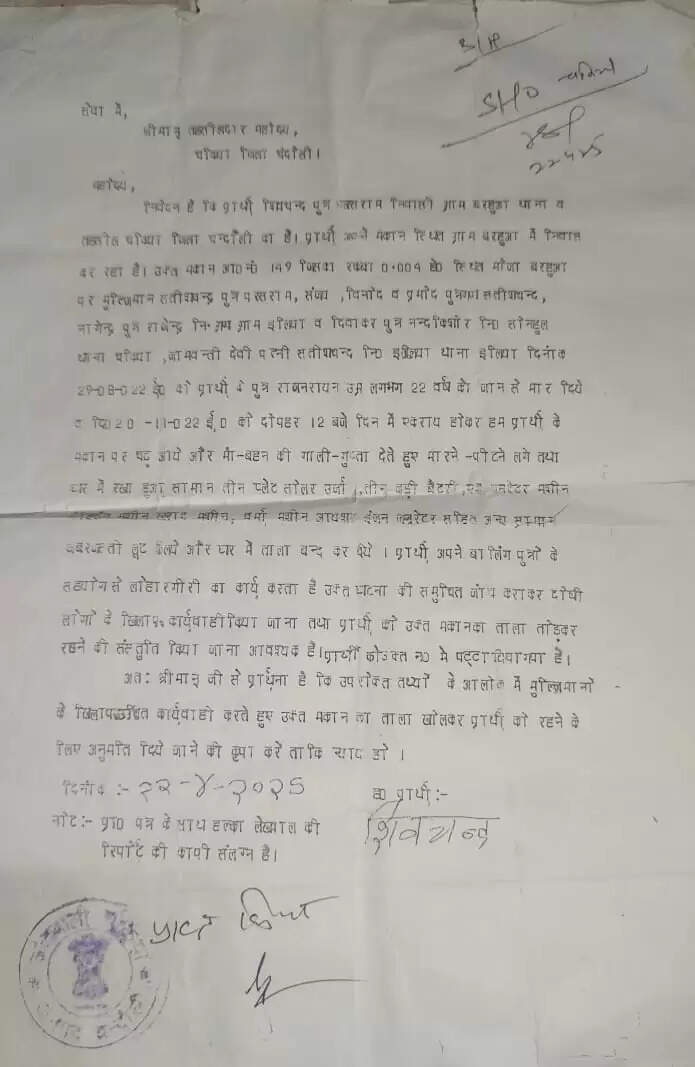 SHO चकिया
22.4.25
सेवा में,
श्रीमान् तहसीलदार महोदय,
चकिया जिला चंदौली।
महोदय,
निवेदन है कि प्रार्थी शिवचन्द पुत्र निवासी ग्राम बरहुआ थाना व
तहसील चकिया जिला चन्दौली का है। प्रार्थी अपने मकान स्थित ग्राम बरहुआ में निवास
कर रहा है। उक्त मकान आ0 नं0 149 जिसका रकबा 0.004 हे0 स्थित मौजा बरहुआ
पर मुल्जिमान सतीशचन्द्र पुत्र परसराम, संजय ,विनोद व प्रमोद पुत्रगण सतीशचन्द,
नागेन्द्र पुत्र राजेन्द्र नि0 ग्राम इलिया व दिवाकर पुत्र नन्दकिशोर नि0
थाना चकिया ,जामवन्ती देवी पत्नी सतीशचन्द नि0 इलिया थाना इलिया दिनांक
29-08-022 ई0 को प्रार्थी के पुत्र राजनरायन उम्र लगभग 22 वर्ष को जान से मार दिये
व दि0 20 -11-022 ई,0 को दोपहर 12 बजे दिन में एकराय होकर हम प्रार्थी के
मकान पर चढ़ आये और माँ-बहन की गाली-गुप्ता देते हुए मारने -पीटने लगे तथा
घर में रखा हुआ सामान तीन प्लेट सोलर उर्जा ,तीन बड़ी बैटरी,एक जनरेटर मशीन
मशीन खराद मशीन, वर्मा मशीन इंजन जनरेटर सहित अन्य सामान
जबरदस्ती लूट लिये और घर में ताला बन्द कर दिये । प्रार्थी अपने बालिग पुत्रों के
सहयोग से लोहारगीरी का कार्य करता है उक्त घटना की समुचित जांच कराकर दोषी
लोगों के खिलाफ कार्यवाही किया जाना तथा प्रार्थी को उक्त मकान का ताला तोड़कर
रहने की संस्तुति किया जाना आवश्यक है।प्रार्थी को उक्त न0 मे पट्टा दिया गया है।
अत: श्रीमान् जी से प्रार्थना है कि उपरोक्त तथ्यों के आलोक में मुल्जिमानों
के खिलाफ उचित कार्यवाही करते हुए उक्त मकान का ताला खोलकर प्रार्थी को रहने के
लिए अनुमति दिये जाने की कृपा करें ताकि न्याय हो ।
दिनांक :- २२-४-२०२५
ह0 प्रार्थी :-
शिवचन्द
नोट:- प्रा0 पत्र के साथ हल्का लेखपाल की
रिपोर्ट की कापी संलग्न है।
प्राप्त किया